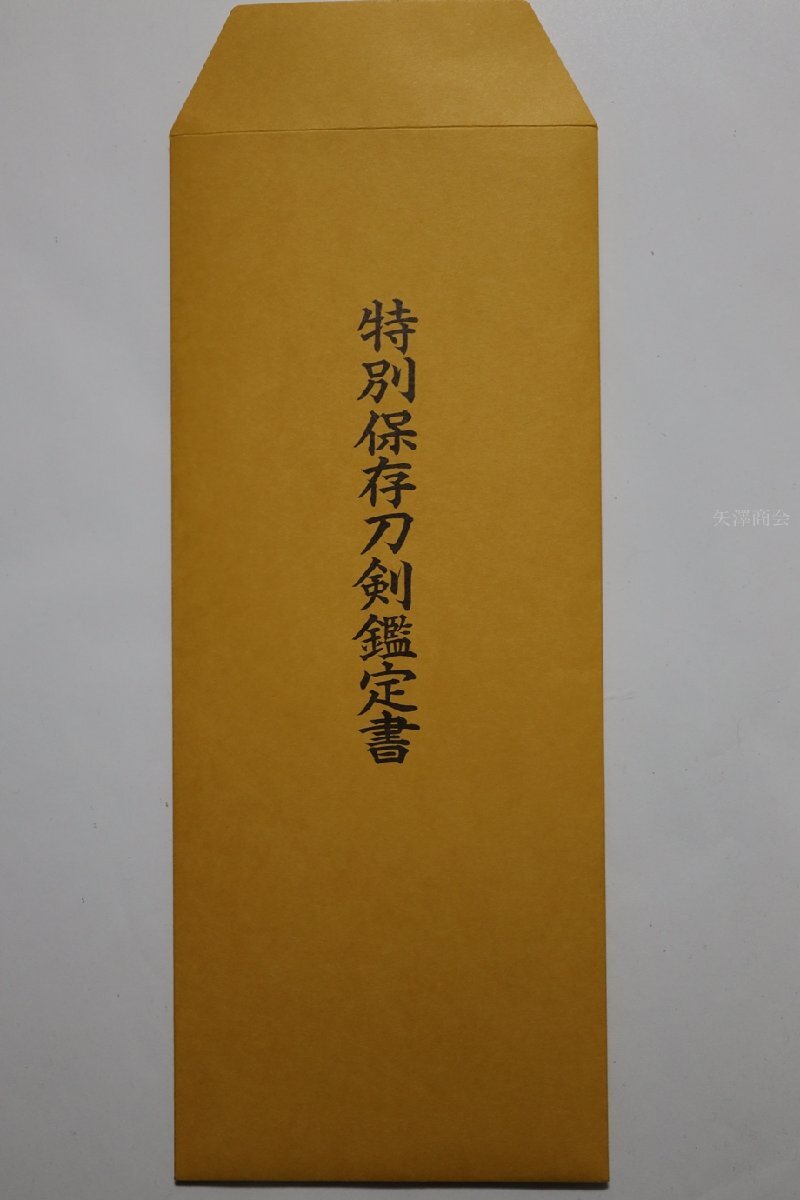 特別保存刀剣鑑定書
矢澤商会